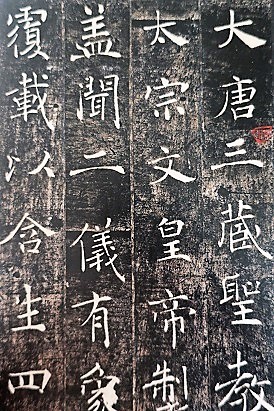 大唐三藏聖教
太宗文皇帝製
盖聞二儀有象
覆載以含生四